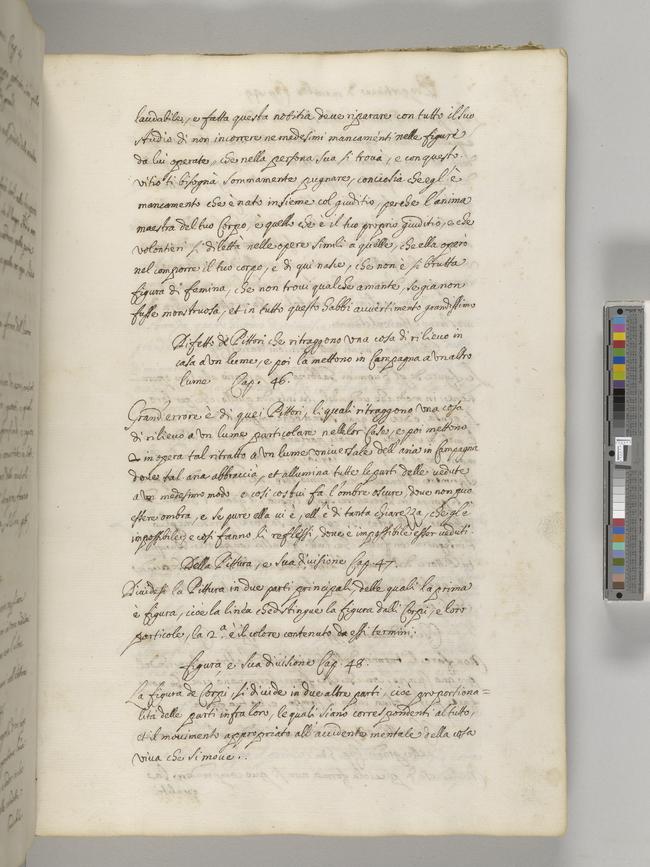 laudabile, e fatta questa notitia deve riparare con tutto il suo
studio di non incorrere ne medesimi mancamenti nelle figure
da lui operate, che nella persona sua si trova, e con questo
vitio ti bisogna sommamente pugnare, conciosia che egl'è
mancamento che è nato insieme col giuditio, perche l'anima
maestra del tuo Corpo, è quello che è il tuo proprio giuditio, e che
volontieri si diletta nelle opere simili a quelle, che ella operò
nel comporre il tuo corpo, e di qui nasce, che non è si brutta
figura di femina, che non trovi qualche amante, se gia non
fusse monstruosa, et in tutto questo habbi avvertimento grandissimo
Difetto de Pittori che ritraggono una cosa di rilievo in
casa a un lume, e poi la mettono in Campagna a un altro
lume Cap. 46.
Grand'errore è di quei Pittori, li quali ritraggono una cosa
di rilievo a un lume particolare nelle lor Case, e poi mettono
in opera tal ritratto a un lume universale dell'aria in Campagna
dove tal aria abbraccia, et allumina tutte le parti delle vedute
a un medesimo modo, e cosi costui fa l'ombre oscure, dove non può
essere ombra, e se pure ella vi è, ell'è di tanta chiarezza, che gl'è
impossibile, e cosi fanno li reflessi, dove è impossibile esser veduti
Della Pittura, e sua divisione Cap. 47.
Dividesi la Pittura in due parti principali, delle quali la prima
è figura, cioè la linea che distingue la figura delli Corpi, e loro
particole, la 2.ª è il colore contenuto da essi termini.
figura, e sua divisione Cap. 48.
La figura de Corpi, si divide in due altre parti, cioè proportiona=
lità delle parti infra loro, le quali siano correspondenti al tutto,
et il movimento appropriato all'accidente mentale della cosa
viva che si move.